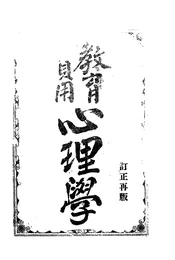 教育
實用
心理學
訂正再版